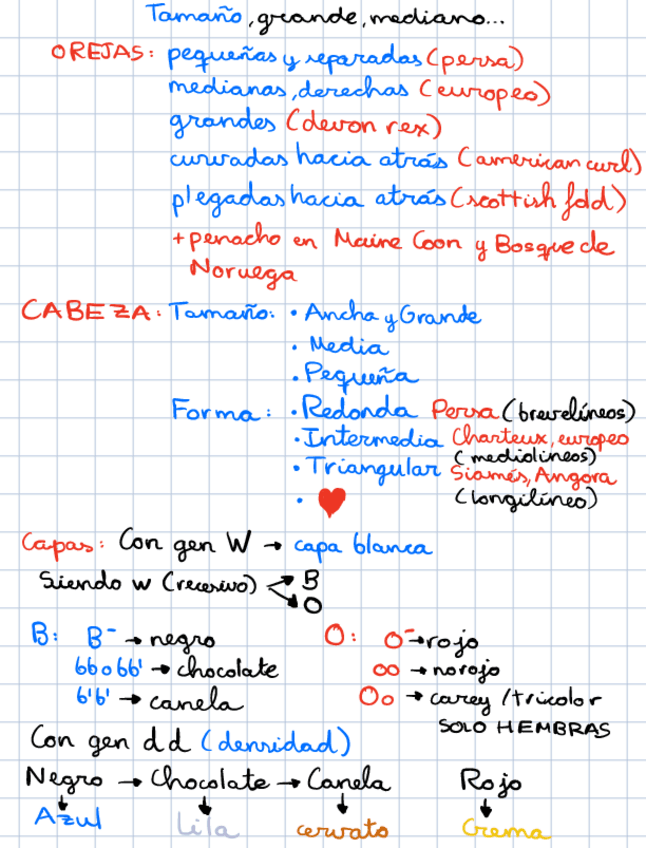 Tamaño, grande, mediano...
OREJAS: pequeñas y separadas (persa)
medianas, derechas (europeo)
grandes (devon rex)
curvadas hacia atrás (american curl)
plegadas hacia atrás (scottish fold)
+ penacho en Maine Coon y Bosque de
Noruega
CABEZA: Tamaño: • Ancha y Grande
• Media
• Pequeña
Forma: • Redonda Persa (brevelíneos)
• Intermedia Charteux, europeo
(mediolineos)
• Triangular Siamés, Angora
• ♥ (longilíneo)
Capas: Con gen W → capa blanca
Siendo w (recesivo) → B
→ O
B: B⁻ → negro O: O⁻ → rojo
bb o bb' → chocolate oo → no rojo
b'b' → canela Oo → carey / tricolor
SOLO HEMBRAS
Con gen dd (densidad)
Negro → Chocolate → Canela Rojo
↓ ↓ ↓ ↓
Azul Lila cervato Crema